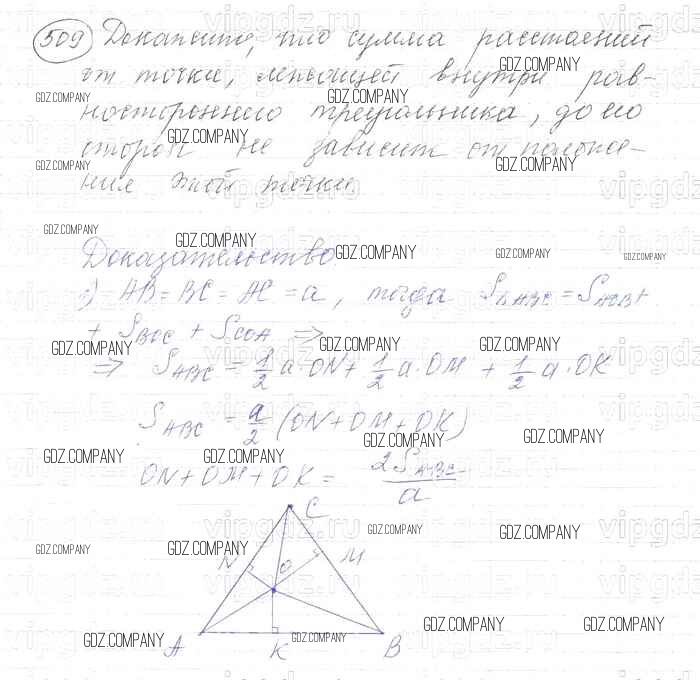 509 Докажите, что сумма расстояний
от точки, лежащей внутри рав-
ностороннего треугольника, до его
сторон не зависит от положе-
ния этой точки.
Доказательство
1) AB = BC = AC = a, тогда S△ABC = SAOB +
+ SBOC + SCOA ⇒
⇒ SABC = 1/2 a · ON + 1/2 a · OM + 1/2 a · OK
SABC = a/2 (ON + OM + OK)
ON + OM + OK = 2SABC/a
C
N O M
A K B
GDZ.COMPANY
vipgdz.ru